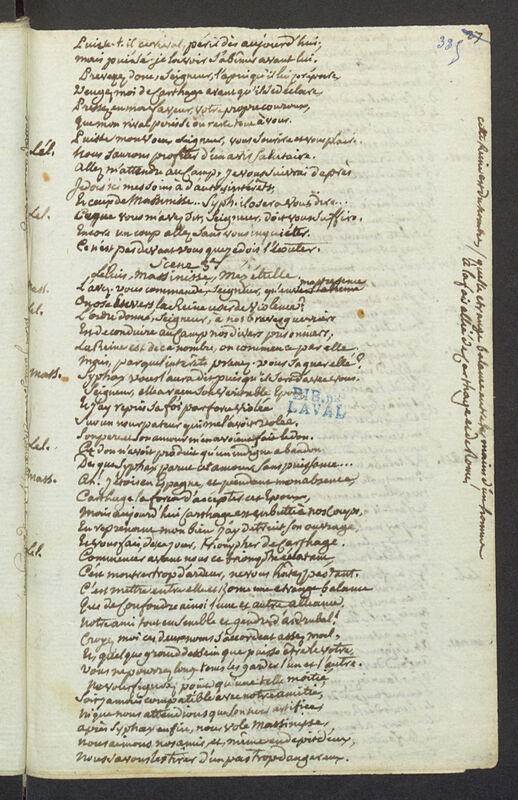 385
27
Puisse-t-il ce rival, périr dès aujourd'hui;
mais puissé-je le voir s'abîmer avant lui.
Prevenez donc, Seigneur, l'apui qu'il lui prépare
Vengez moi de Carthage avant qu'il se déclare
Pressez en ma faveur votre propre courroux,
que mon rival périsse, ou reste tout à vous.
Puisse mon amour, Seigneur,
Lél. Nous saurons profiter d'un avis salutaire.
Allez m'attendre au Camp, Je vous suivrai de près
Je dois ici mes soins à d'autres intérêts,
Et ceux de Massinisse... Syph. il osera vous dire...
Lel. Ce que vous m'avez dit, Seigneur, doit vous suffire.
Encore un coup allez sans vous inquiéter.
Ce n'est pas devant vous que je dois l'écouter.
Scene 3e
Lelius, Massinisse, Mézétulle.
Mass. L'avez-vous commandé, Seigneur, qu'en ma presence
On ose envers la Reine user de Violence?
Lel. L'ordre donné, Seigneur, à nos braves guerriers
Est de conduire au Camp nos divers prisonniers,
La Reine est de ce nombre, on commence par elle.
Mais, par quel intérêt prenez-vous sa querelle?
Mass. Syphax vous l'aura dit puisqu'il sort d'avec vous.
Seigneur, elle a reçu son véritable Epoux
Et j'ay repris sa foi par force violée
Sur un usurpateur qui me l'avoit volée.
Son pere et son amour m'en avoient fait le don.
Lel. Ce don n'a-t-il produit qu'un indigne abandon
Dès que Syphax parut cet amour sans puissance...
Mass. Ah! J'étois en Espagne, et pendant mon absence,
Carthage la força d'accepter cet Epoux,
Mais aujourd'hui Carthage est en butte à nos coups,
En reprenant mon bien j'ay détruit son ouvrage,
Et vous fais dès ce jour, triompher de Carthage.
Lel. Commencer avant nous ce triomphe éclatant
C'est montrer trop d'ardeur, ne vous hâtez pas tant.
C'est mettre entre elle et Rome une étrange balance
Que de confondre ainsi l'une et l'autre alliance.
Notre ami tout ensemble et gendre d'Asdrubal!
Croyez moi ces deux noms s'accordent assez mal,
Et, quelque grand dessein que puisse être le votre
Vous ne pourrez long-tems les garder l'un et l'autre.
Ne vous figurez point qu'une telle moitié
Soit jamais compatible avec notre amitié,
Ni que nous attendions que les mêmes artifices
Après Syphax enfin, nous vole Massinisse,
Nous aimons nos amis, et même en depit d'eux,
Nous savons les tirer d'un pas trop dangereux.
BIB. DE
LAVAL
quelle étrange balance entre les mains d'un homme
à la fois allié de Carthage et de Rome,